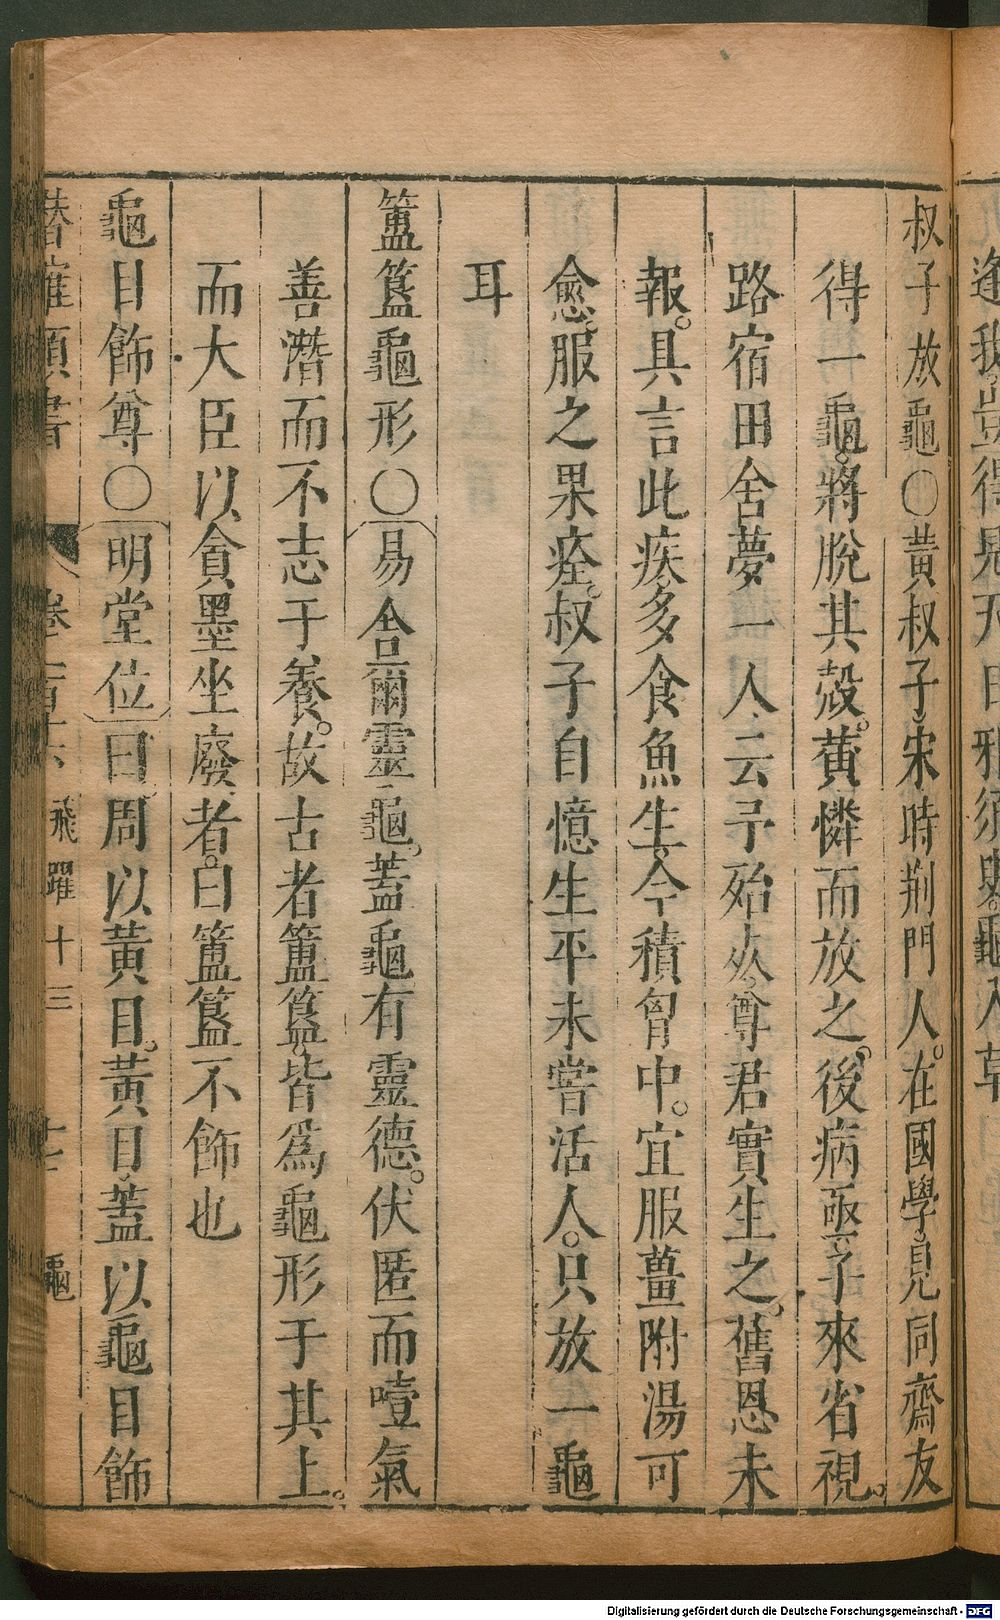 逢我豈得見天日邪須臾龜入草
叔子放龜○黃叔子宋時荆門人在國學見同齋友
得一龜將脫其殼黃憐而放之後病亟子來省視
路宿田舍夢一人云予殆灰尊君實生之舊恩未
報具言此疾多食魚生今積胷中宜服薑附湯可
愈服之果痊叔子自憶生平未嘗活人只放一龜
耳
簠簋龜形○易舍爾靈龜蓋龜有靈德伏匿而噎氣
善潛而不志于養故古者簠簋皆爲龜形于其上
而大臣以貪墨坐廢者曰簠簋不飾也
龜目飾尊○明堂位曰周以黃目黃目蓋以龜目飾
潛確類書 卷一百十六 飛躍十三 龜
Digitalisierung gefördert durch die Deutsche Forschungsgemeinschaft - DFG